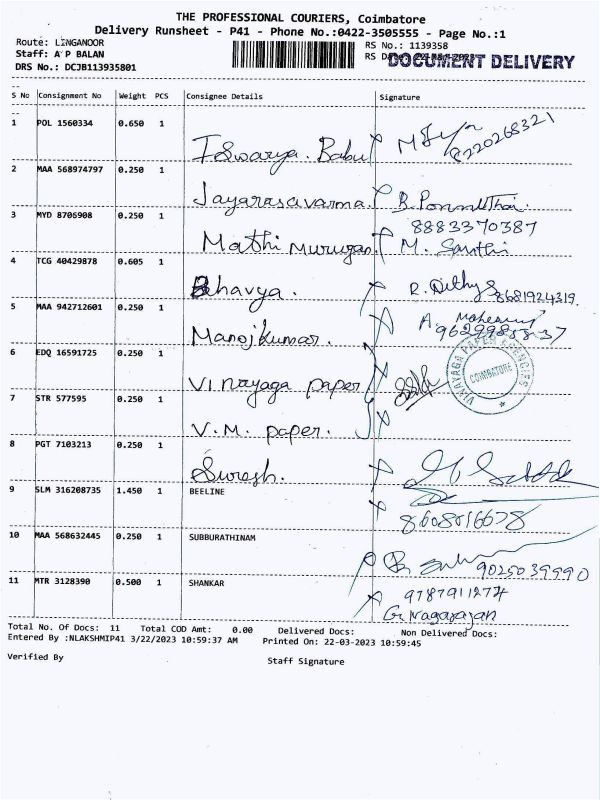 THE PROFESSIONAL COURIERS, Coimbatore
Delivery Runsheet - P41 - Phone No.:0422-3505555 - Page No.:1
Route: LINGANOOR
RS No.: 1139358
Staff: A P BALAN
RS
DOCUMENT DELIVERY
DRS No.: DCJB113935801
S No Consignment No Weight PCS Consignee Details Signature
1 POL 1560334 0.650 1 Iswarya. Babu 8220268321
2 MAA 568974797 0.250 1 Jayarasavarma.
8883370387
3 MYD 8706908 0.250 1 Mathi Murugan. M. Santhi
4 TCG 40429878 0.605 1 Bhavya. 8681924319.
5 MAA 942712601 0.250 1 Manojkumar. A.
6 EDQ 16591725 0.250 1 Vinayaga paper
VINAYAGA PAPER AGENCIES COIMBATORE
7 STR 577595 0.250 1 V.M. paper.
8 PGT 7103213 0.250 1 Suresh.
9 SLM 316208735 1.450 1 BEELINE
8608016678
10 MAA 568632445 0.250 1 SUBBURATHINAM 9025039990
11 MTR 3128390 0.500 1 SHANKAR 9787911274
G. Nagarajan
Total No. Of Docs: 11 Total COD Amt: 0.00 Delivered Docs: Non Delivered Docs:
Entered By :NLAKSHMIP41 3/22/2023 10:59:37 AM Printed On: 22-03-2023 10:59:45
Verified By Staff Signature